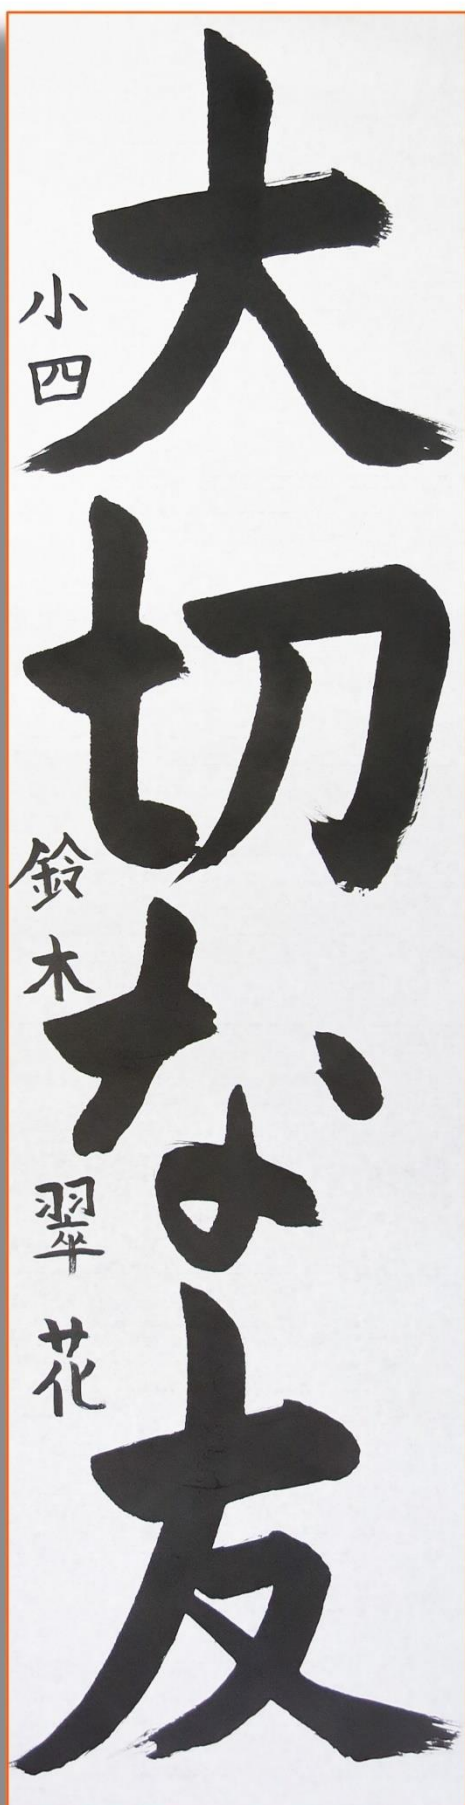 大切な友
小四 鈴木翠花